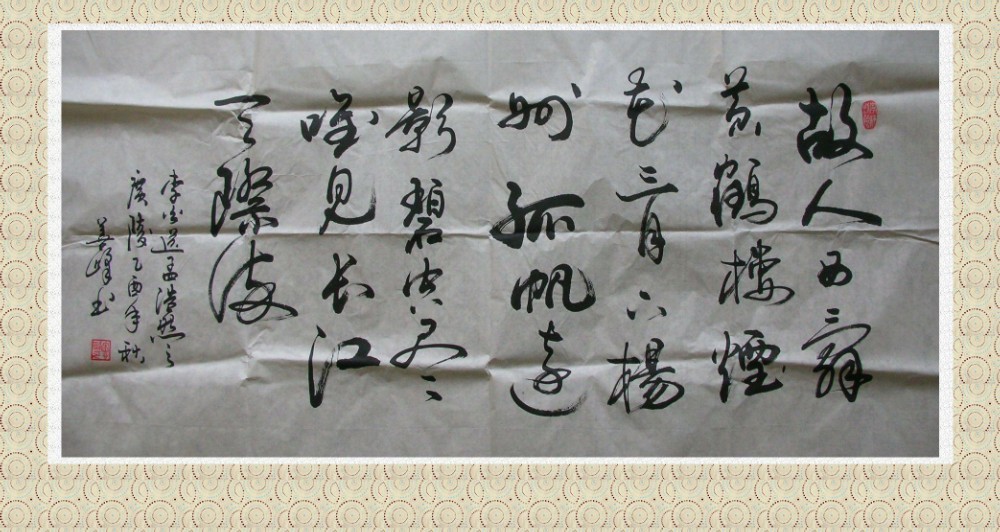 故人西辞
黄鶴楼煙
花三月下楊
州孤帆遠
影碧空尽
唯見長江
天際流
李白送孟浩然之
廣陵乙酉年秋
善峰书